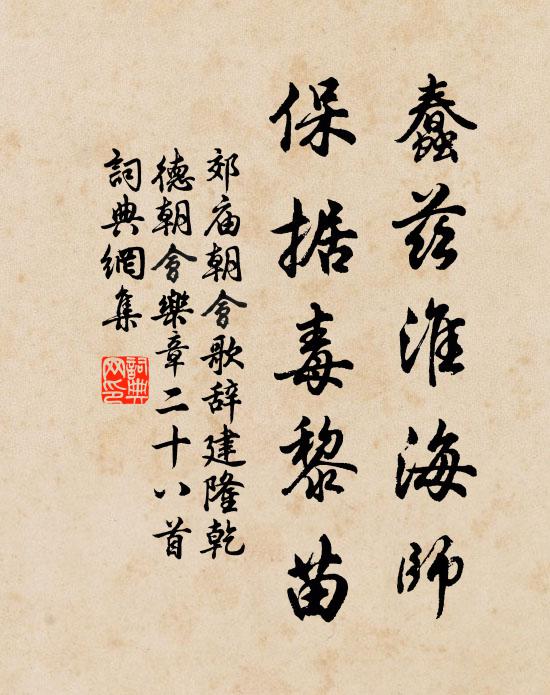 蠢茲淮海師
保据毒黎苗
郊庙朝會歌辞建隆乾
德朝會樂章二十八首
詞典網集
詞典网印